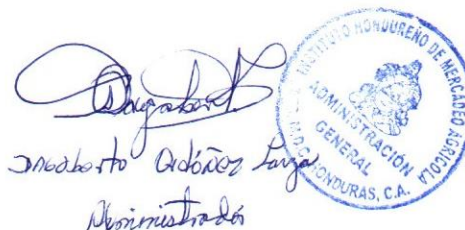 Dagobert
Ordóñez
Administrador
INSTITUTO HONDUREÑO DE MERCADEO AGRICOLA
ADMINISTRACIÓN
GENERAL
M.D.C. HONDURAS, C.A.